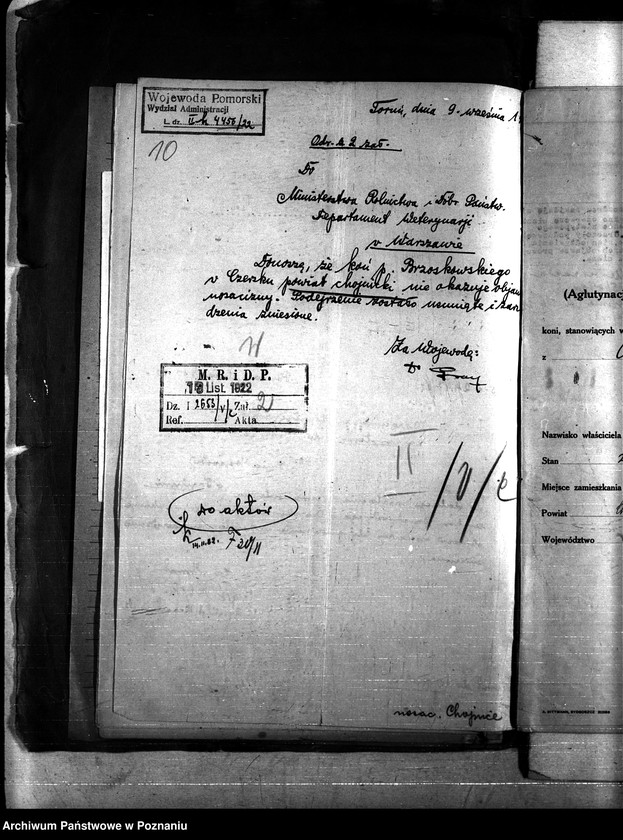 Wojewoda Pomorski
Wydział Administracji
L. dz. II h 4456/22
10
Toruń, dnia 9 września 1
Odr. k 2 zał.
Do
Ministerstwa Rolnictwa i Dóbr Państw.
Departament Weterynarji
w Warszawie
Donoszę, że koń p. Brzoskowskiego
w Czersku powiat chojnicki nie okazuje objaw
nosacizny. Podejrzenie zostało usunięte i zarz
dzenia zniesione.
Za Wojewodę:
Dr
M. R. i D. P.
List. 1922
Dz. I 2653/V/ Zał. 2
Ref. Akta
II
/V/
Do aktów
14.11.22. 20/11
nosac. Chojnice
(Aglutynac
koni, stanowiących w
z
Nazwisko właściciela
Stan
Miejsce zamieszkania
Powiat
Województwo
Archiwum Państwowe w Poznaniu